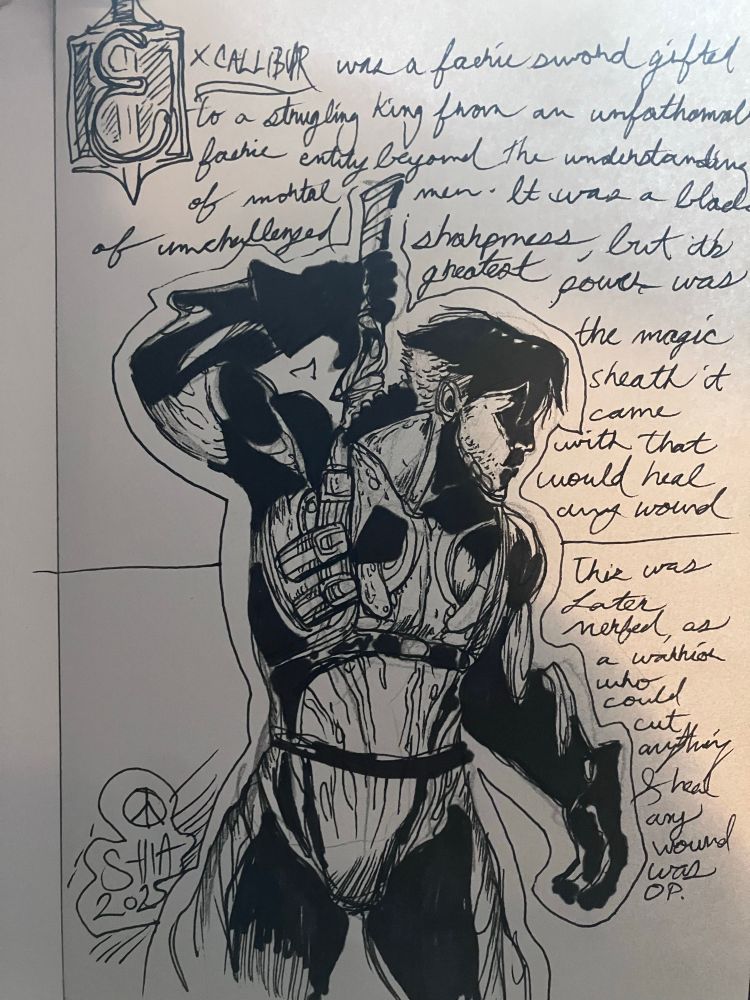 EXCALLIBUR was a faerie sword gifted
to a strugling King from an unfathomal
faerie entity beyond the understanding
of mortal men. It was a blade
of unchallenged sharpness, but it's
greatest power was
the magic
sheath it
came
with that
would heal
any wound
This was
Later
nerfed, as
a warrior
who
could
cut
anything
& heal
any
wound
was
OP.
SHIA
2025